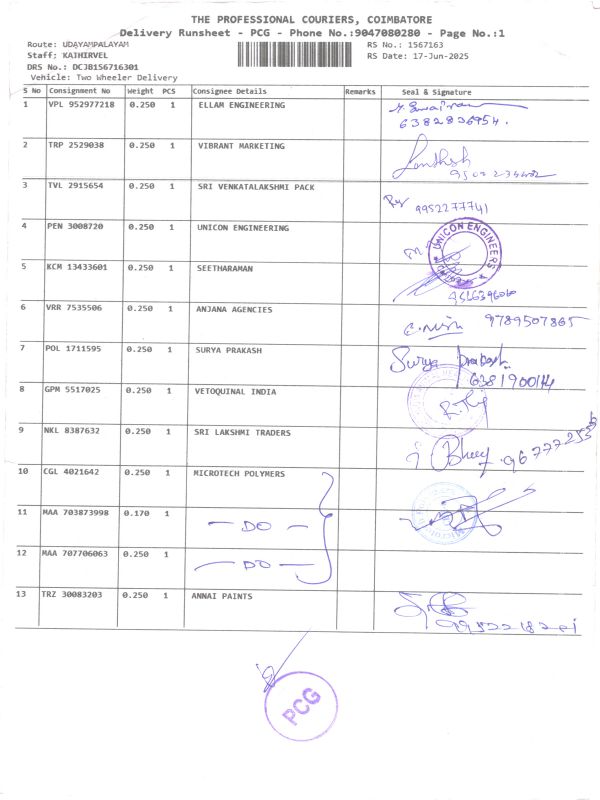 THE PROFESSIONAL COURIERS, COIMBATORE
Delivery Runsheet - PCG - Phone No.:9047080280 - Page No.:1
Route: UDAYAMPALAYAM RS No.: 1567163
Staff: KATHIRVEL RS Date: 17-Jun-2025
DRS No.: DCJB156716301
Vehicle: Two Wheeler Delivery
S No Consignment No Weight PCS Consignee Details Remarks Seal & Signature
1 VPL 952977218 0.250 1 ELLAM ENGINEERING
6382836954.
2 TRP 2529038 0.250 1 VIBRANT MARKETING
Santhosh
3 TVL 2915654 0.250 1 SRI VENKATALAKSHMI PACK
9952277741
4 PEN 3008720 0.250 1 UNICON ENGINEERING UNICON ENGINEERS
5 KCM 13433601 0.250 1 SEETHARAMAN
6 VRR 7535506 0.250 1 ANJANA AGENCIES
9789507865
7 POL 1711595 0.250 1 SURYA PRAKASH Surya Prakash
8 GPM 5517025 0.250 1 VETOQUINAL INDIA
9 NKL 8387632 0.250 1 SRI LAKSHMI TRADERS
10 CGL 4021642 0.250 1 MICROTECH POLYMERS
11 MAA 703873998 0.170 1 — DO —
12 MAA 707706063 0.250 1 — DO —
13 TRZ 30083203 0.250 1 ANNAI PAINTS
PCG